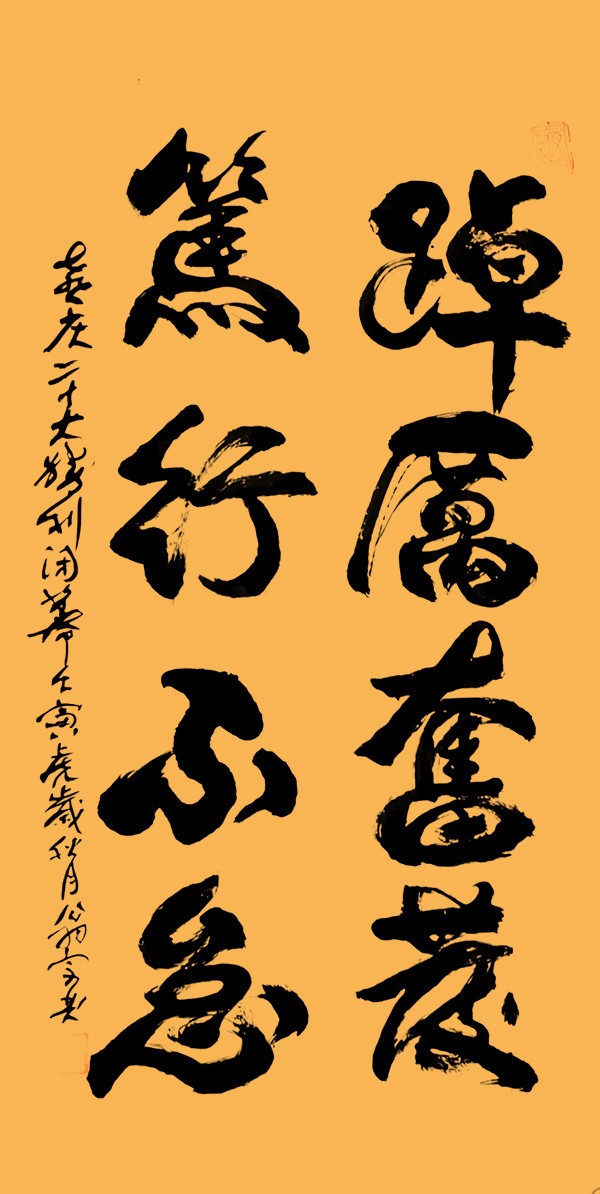 踔厲奮發
篤行不怠
喜庆二十大勝利闭幕壬寅虎歲秋月翁